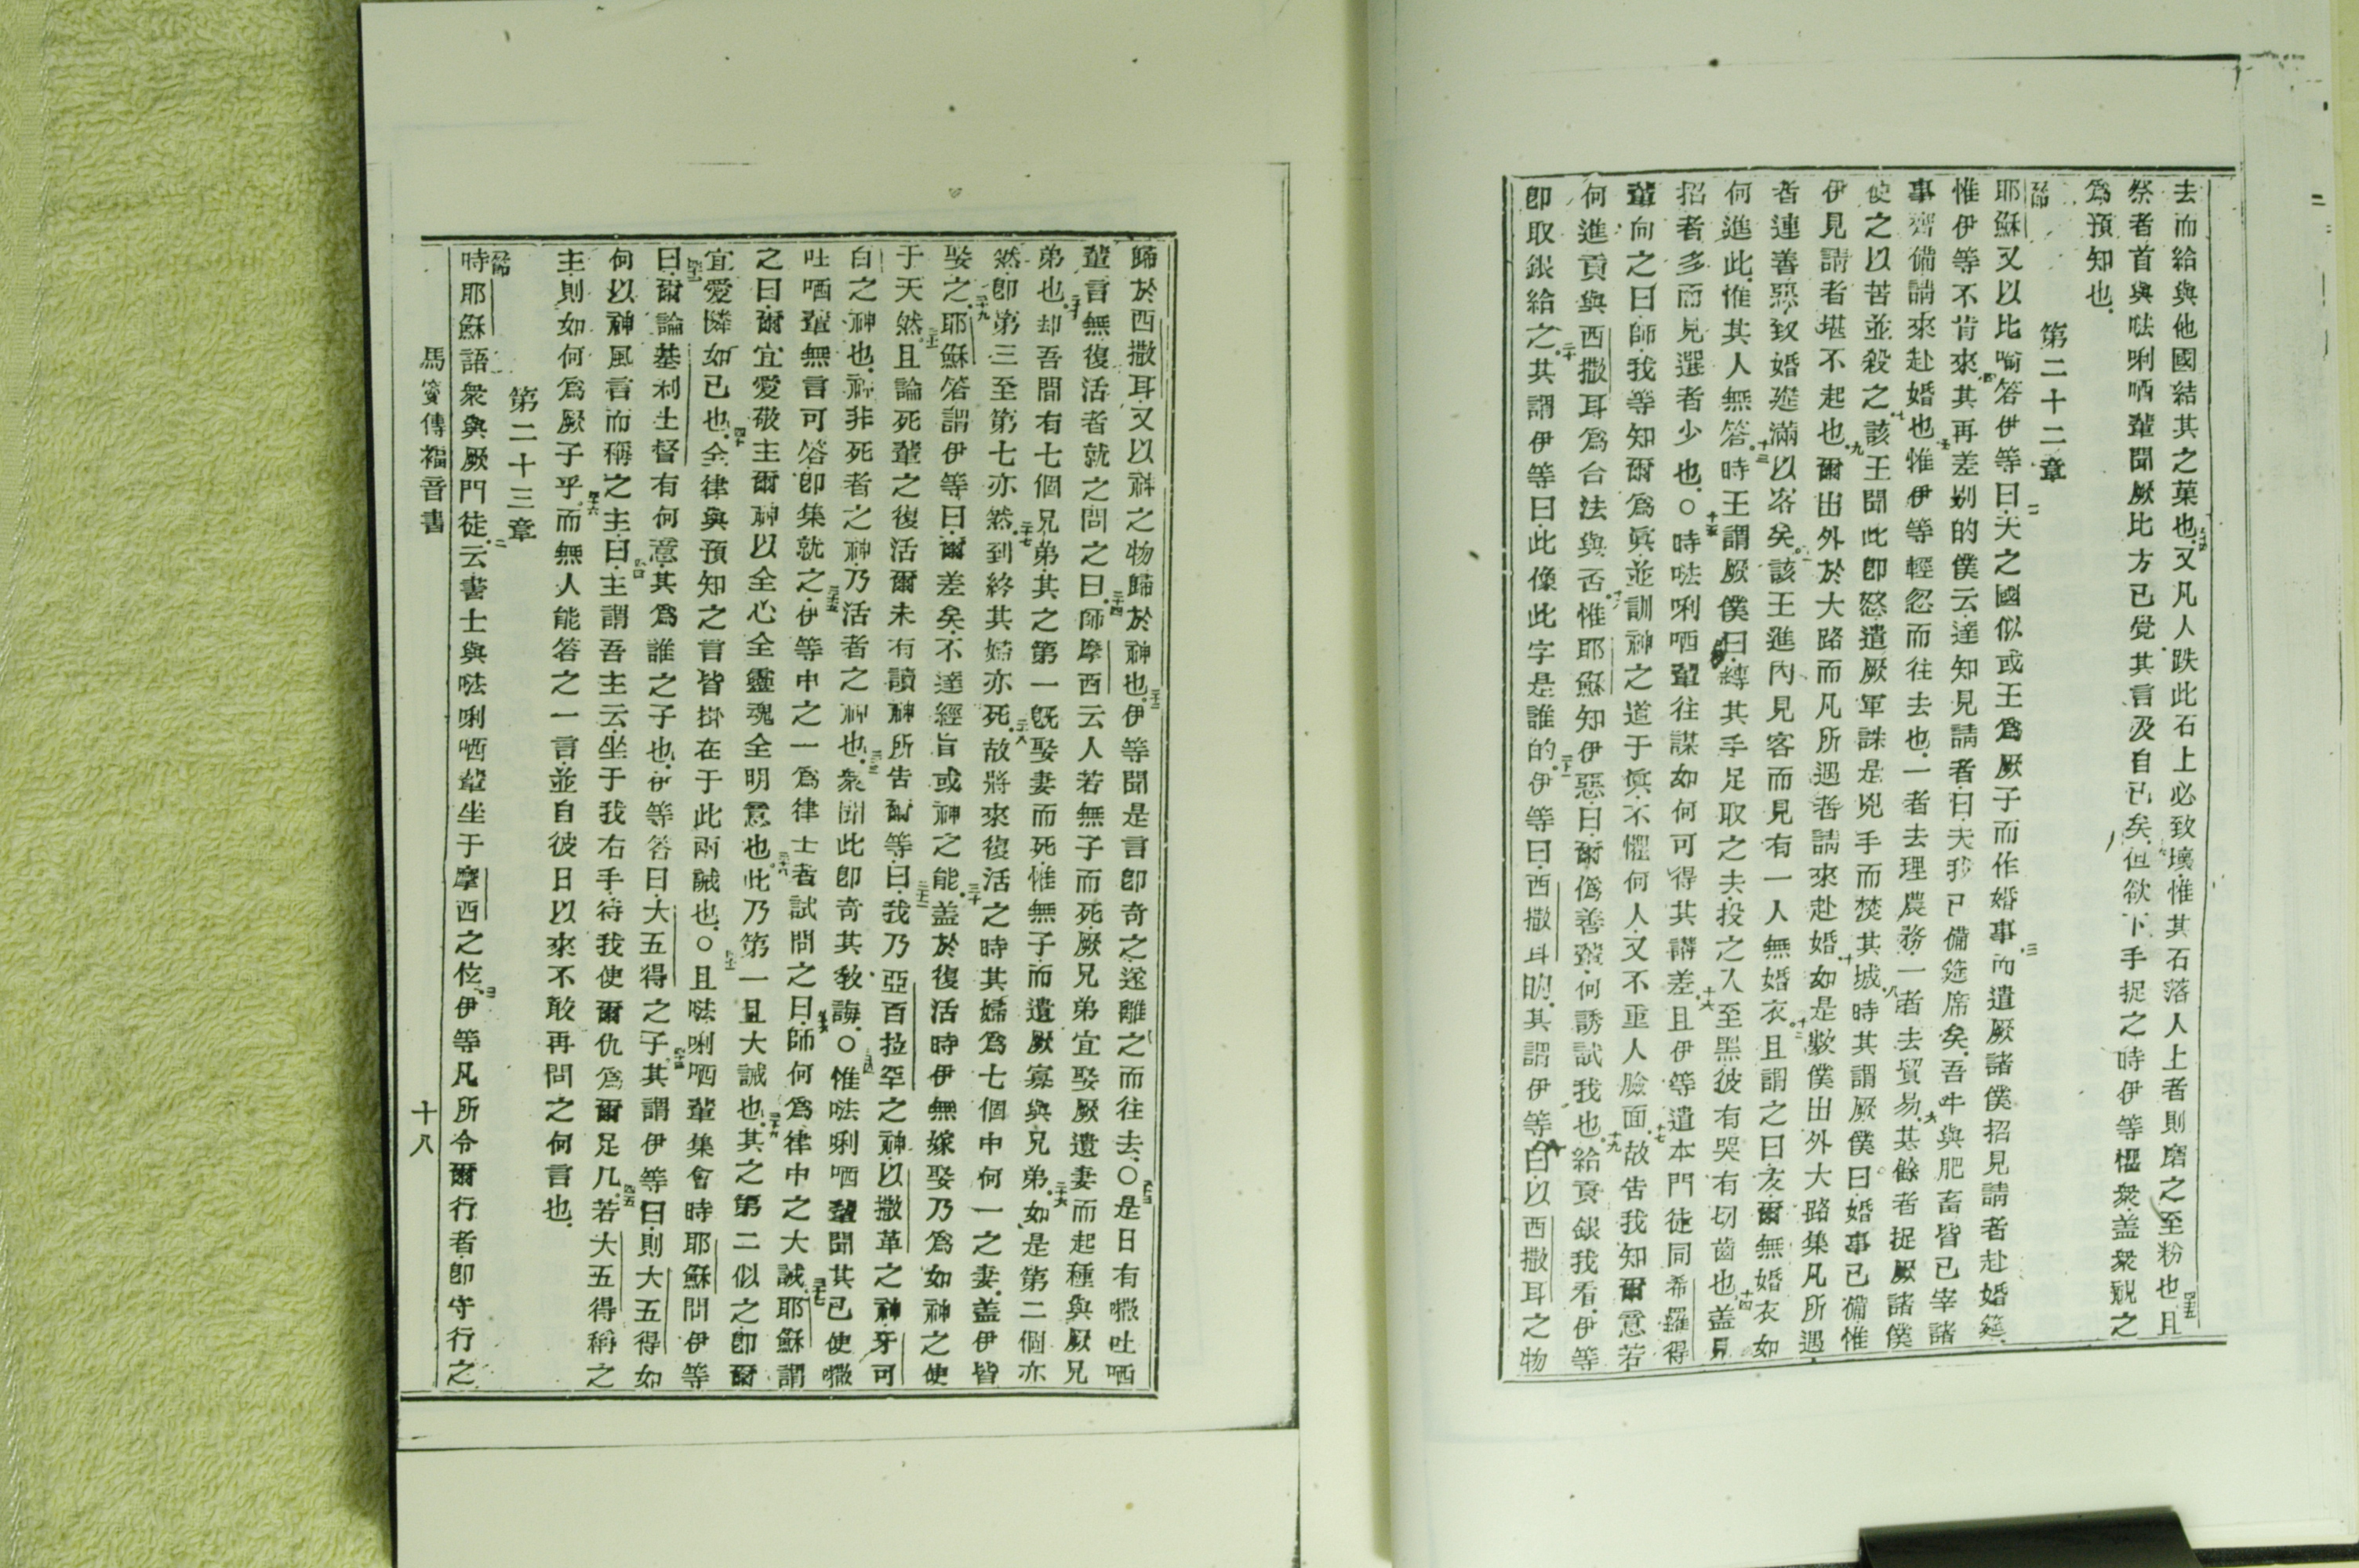 去而給與他國結其之菓也又凡人跌此石上必致壞惟其石落人上者則磨之至粉也且
祭者首與㕸唎哂輩聞厥比方已覺其言及自已矣但欲下手捉之時伊等懼衆盖衆視之
爲預知也
第二十二章
耶穌又以比喻答伊等曰天之國似或王爲厥子而作婚事三而遣厥諸僕招見請者赴婚筵
惟伊等不肯來四其再差別的僕云達知見請者曰夫我已備筵席矣吾牛與肥畜皆已宰諸
事齊備請來赴婚也五惟伊等輕忽而往去也一者去理農務一者去貿易六其餘者捉厥諸僕
使之以苦並殺之七該王聞此卽怒遣厥軍誅是兇手而焚其城八時其謂厥僕曰婚事已備惟
伊見請者堪不起也九爾出外於大路而凡所遇者請來赴婚十如是數僕出外大路集凡所遇
者連善惡致婚筵滿以客矣十一該王進內見客而見有一人無婚衣十二且謂之曰友爾無婚衣如
何進此惟其人無答十三時王謂厥僕曰縛其手足取之夫投之入至黑彼有哭有切齒也十四盖見
招者多而見選者少也〇十五時㕸唎哂輩往謀如何可得其講差十六且伊等遣本門徒同希羅得
輩向之曰師我等知爾爲眞並訓神之道于眞不懼何人又不重人臉面十七故告我知爾意若
何進貢與西撒耳爲台法與否十八惟耶穌知伊惡曰爾僞善輩何誘試我也十九給貢銀我看伊等
卽取銀給之二十其謂伊等曰此像此字是誰的二十一伊等曰西撒耳的其謂伊等曰以西撒耳之物
歸於西撒耳又以神之物歸於神也二十二伊等聞是言卽奇之遂離之而往去〇二十三是日有㘔吐哂
輩言無復活者就之問之曰二十四師摩西云人若無子而死厥兄弟宜娶厥遺妻而起種與厥兄
弟也二十五却吾間有七個兄弟其之第一旣娶妻而死惟無子而遺厥寡與兄弟二十六如是第二個亦
然卽第三至第七亦然二十七到終其婦亦死二十八故將來復活之時其婦爲七個中何一之妻盖伊皆
娶之二十九耶穌答謂伊等曰爾差矣不達經旨或神之能三十盖於復活時伊無嫁娶乃爲如神之使
于天然三十一且論死輩之復活爾未有讀神所告爾等曰三十二我乃亞百拉罕之神以撒革之神牙可
百之神也神非死者之神乃活者之神也三十三衆聞此卽奇其敎誨〇三十四惟㕸唎哂輩聞其已使㘔
吐哂輩無言可答卽集就之三十五伊等中之一爲律士者試問之曰三十六師何爲律中之大誡三十七耶穌謂
之曰爾宜愛敬主爾神以全心全靈魂全明意也三十八此乃第一且大誡也三十九其之第二似之卽爾
宜愛隣如已也四十全律與預知之言皆掛在于此兩誡也〇四十一且㕸唎哂輩集會時耶穌問伊等
曰四十二爾論基利士督有何意其爲誰之子也伊等答曰大五得之子四十三其謂伊等曰則大五得如
何以神風言而稱之主曰四四主謂吾主云坐于我右手待我使爾仇爲爾足几四五若大五得稱之
主則如何爲厥子乎四十六而無人能答之一言並自彼日以來不敢再問之何言也
第二十三章
時耶穌語衆與厥門徒二云書士與㕸唎哂輩坐于摩西之位三伊等凡所令爾行者卽守行之
馬竇傳福音書 十八